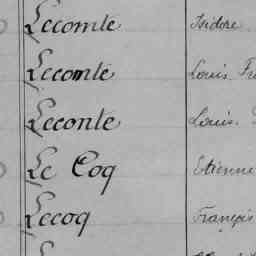 Lecomte Isidore
Lecomte Louis
Leconte Louis
Le Coq Etienne
Lecoq François